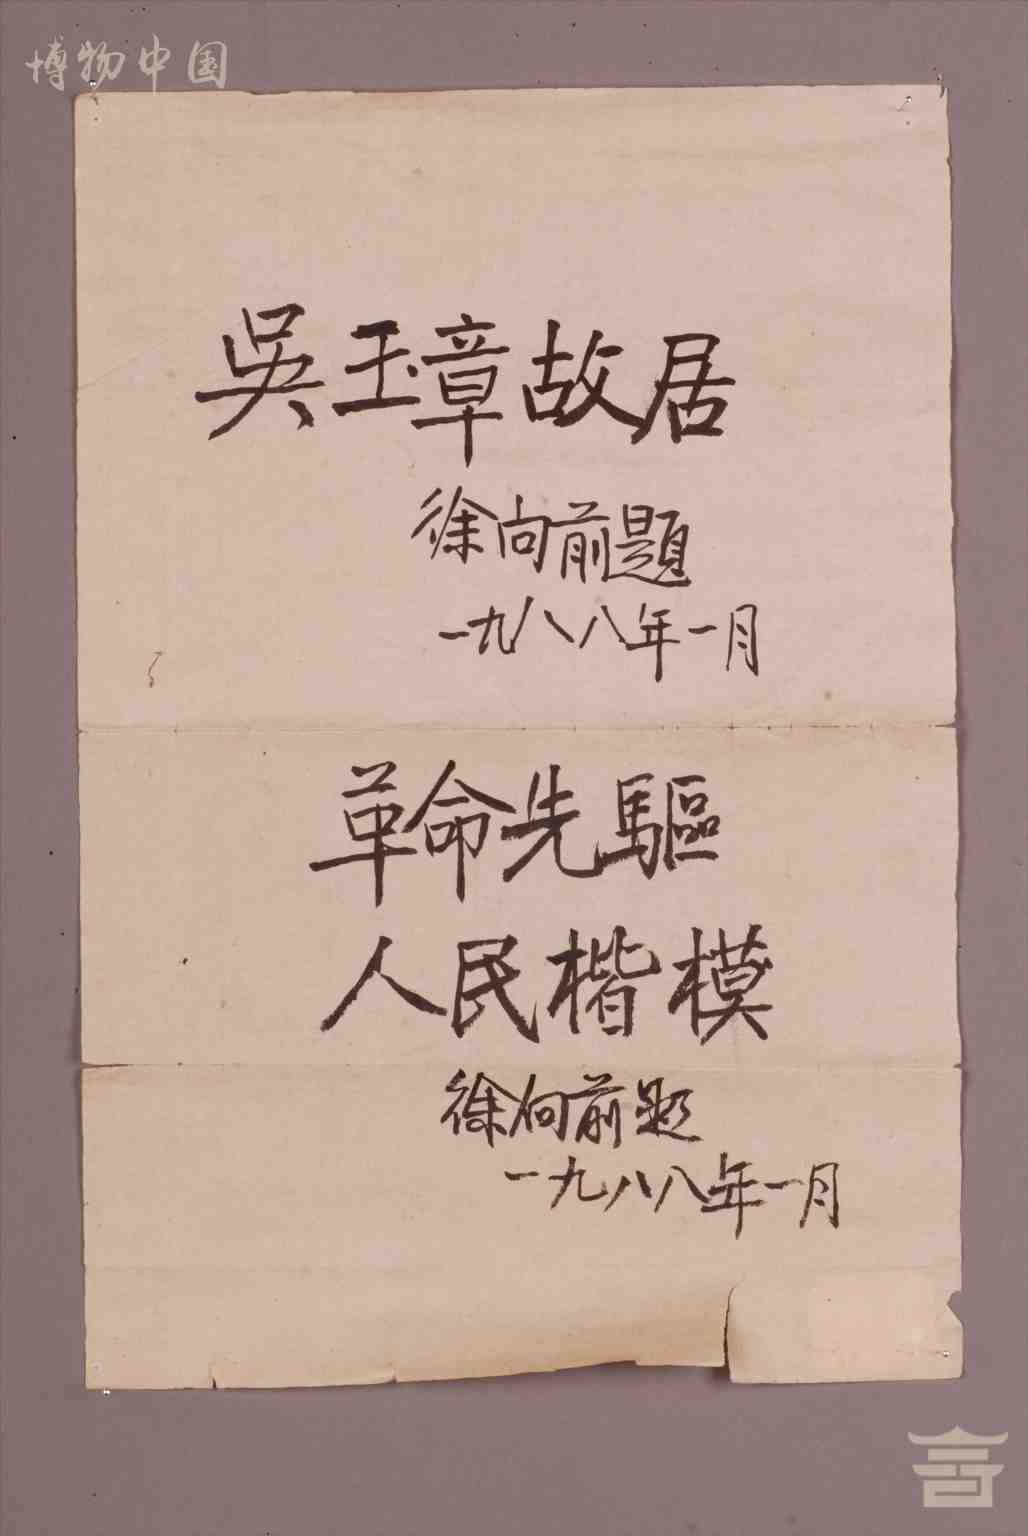 博物中国
吳玉章故居
徐向前題
一九八八年一月
革命先驅
人民楷模
徐向前题
一九八八年一月